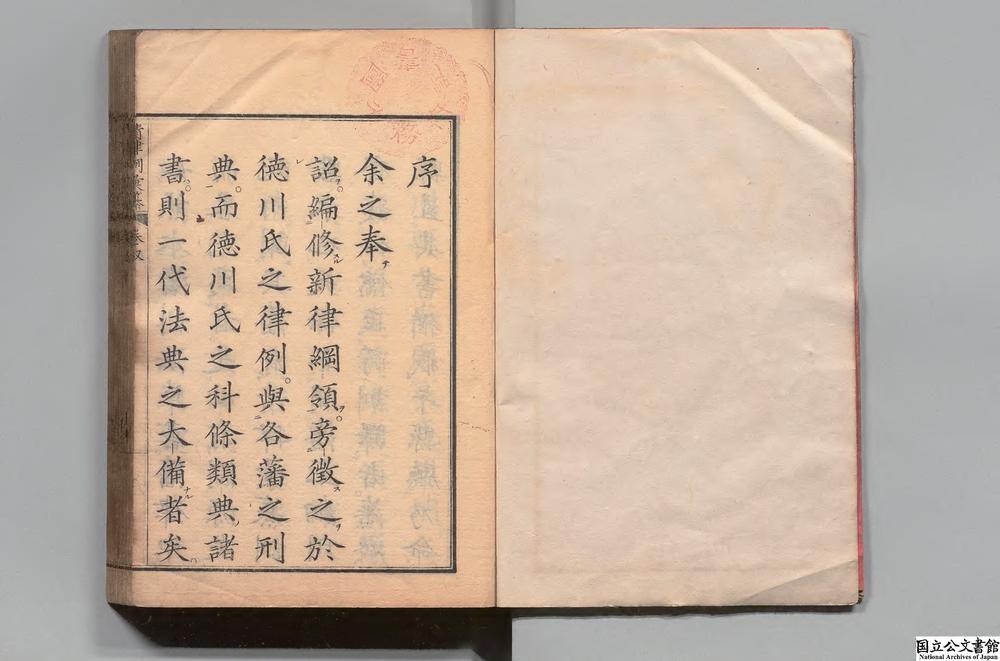 序
余之奉
詔編修新律綱領旁徴之於
徳川氏之律例與各藩之刑
典而徳川氏之科條類典諸
書則一代法典之大備者矣
国立公文書館
National Archives of Japan